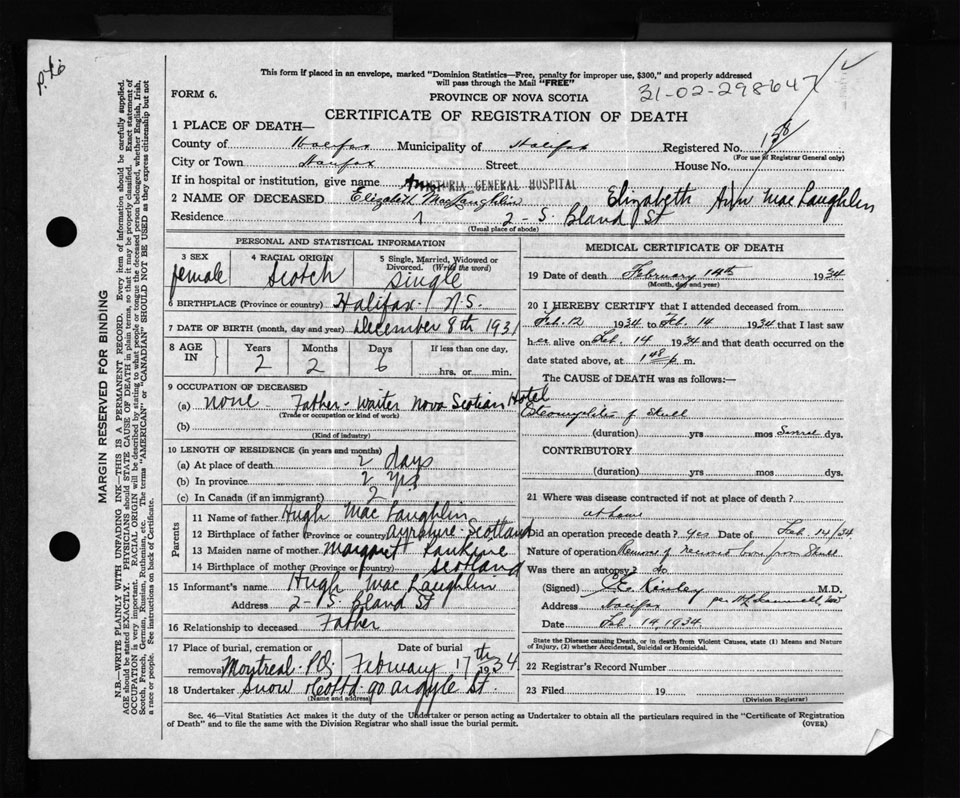 This form if placed in an envelope, marked "Dominion Statistics—Free, penalty for improper use, $300," and properly addressed
will pass through the Mail "FREE"
31-02-298647
FORM 6.
PROVINCE OF NOVA SCOTIA
CERTIFICATE OF REGISTRATION OF DEATH
158
1 PLACE OF DEATH—
County of Halifax Municipality of Halifax Registered No.
(For use of Registrar General only)
City or Town Halifax Street House No.
If in hospital or institution, give name VICTORIA GENERAL HOSPITAL
2 NAME OF DECEASED Elizabeth MacLaughlin Elizabeth Ann MacLaughlin
Residence 2 - S. Bland St
(Usual place of abode)
PERSONAL AND STATISTICAL INFORMATION
3 SEX female
4 RACIAL ORIGIN Scotch
5 Single, Married, Widowed or Divorced. (Write the word) Single
6 BIRTHPLACE (Province or country) Halifax. N.S.
7 DATE OF BIRTH (month, day and year) December 8th 1931
8 AGE IN
Years Months Days If less than one day,
2 2 6 hrs. or min.
9 OCCUPATION OF DECEASED
(a) none Father - Waiter Nova Scotian Hotel
(Trade or occupation or kind of work)
(b)
(Kind of industry)
10 LENGTH OF RESIDENCE (in years and months)
(a) At place of death 2 days
(b) In province 2 yrs
(c) In Canada (if an immigrant) 2
Parents
11 Name of father Hugh MacLaughlin
12 Birthplace of father (Province or country) Ayrshire - Scotland
13 Maiden name of mother Margaret Rankine
14 Birthplace of mother (Province or country) Scotland
15 Informant's name Hugh MacLaughlin
Address 2 - S. Bland St
16 Relationship to deceased Father
17 Place of burial, cremation or removal Montreal - P.Q. Date of burial February 17th 1934
18 Undertaker Snow & Co Ltd - 90 Argyle St.
(Name and address)
MEDICAL CERTIFICATE OF DEATH
19 Date of death February 14th 1934
(Month, day and year)
20 I HEREBY CERTIFY that I attended deceased from
Feb. 12 1934 to Feb. 14 1934 that I last saw
her alive on Feb. 14 1934 and that death occurred on the
date stated above, at 1 48 p. m.
The CAUSE of DEATH was as follows:—
Osteomyelitis of Skull
(duration) yrs mos Several dys.
CONTRIBUTORY
(duration) yrs. mos. dys.
21 Where was disease contracted if not at place of death?
at home
Did an operation precede death? yes Date of Feb. 14/34
Nature of operation Removal of necrosed bone from Skull
Was there an autopsy?
(Signed) C.E. Kinley M.D.
Address Halifax per
Date Feb. 14 1934
State the Disease causing Death, or in death from Violent Causes, state (1) Means and Nature
of Injury, (2) whether Accidental, Suicidal or Homicidal.
22 Registrar's Record Number
23 Filed 19
(Division Registrar)
Sec. 46—Vital Statistics Act makes it the duty of the Undertaker or person acting as Undertaker to obtain all the particulars required in the "Certificate of Registration
of Death" and to file the same with the Division Registrar who shall issue the burial permit. (OVER)
MARGIN RESERVED FOR BINDING
N.B.—WRITE PLAINLY WITH UNFADING INK—THIS IS A PERMANENT RECORD. Every item of information should be carefully supplied.
AGE should be stated EXACTLY. PHYSICIANS should STATE CAUSE OF DEATH in plain terms, so that it may be properly classified. Exact statement of
OCCUPATION is very important. RACIAL ORIGIN will be described by stating to what people or tongue the deceased person belonged, whether English, Irish,
Scotch, French, German, Russian, Ruthenian, etc. The terms "AMERICAN" or "CANADIAN" SHOULD NOT BE USED as they express citizenship but not
a race or people. See instructions on back of Certificate.